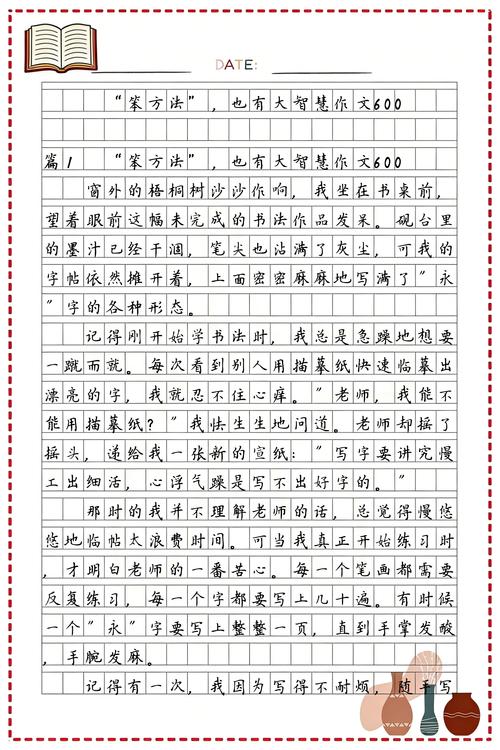 DATE:
“笨方法”，也有大智慧作文600
篇1 “笨方法”，也有大智慧作文600
窗外的梧桐树沙沙作响，我坐在书桌前，
望着眼前这幅未完成的书法作品发呆。砚台里
的墨汁已经干涸，笔尖也沾满了灰尘，可我的
字帖依然摊开着，上面密密麻麻地写满了”永
”字的各种形态。
记得刚开始学书法时，我总是急躁地想要
一蹴而就。每次看到别人用描摹纸快速临摹出
漂亮的字，我就忍不住心痒。”老师，我能不
能用描摹纸？”我怯生生地问道。老师却摇了
摇头，递给我一张新的宣纸：”写字要讲究慢
工出细活，心浮气躁是写不出好字的。”
那时的我并不理解老师的话，总觉得慢悠
悠地临帖太浪费时间。可当我真正开始练习时
，才明白老师的一番苦心。每一个笔画都需要
反复练习，每一个字都要写上几十遍。有时候
一个”永”字要写上整整一页，直到手掌发酸
，手腕发麻。
记得有一次，我因为写得不耐烦，随手写